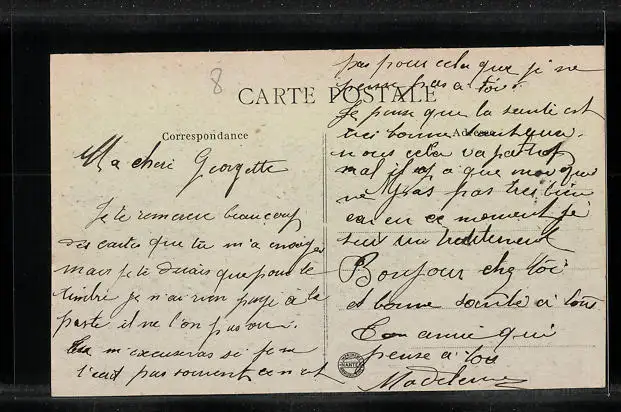 8
CARTE POSTALE
Correspondance
Adresse
Ma cheri Georgette
Je te remercie beaucoup
des cartes que tu m'a envoyer
mais je te dirais que pour le
timbre je n'ai rien paye à la
poste il ne l'on pas vu.
Tu m'excuseras si je ne
t'ecrit pas souvent ce n'est
pas pour cela que je ne
pense pas a toi.
Je pense que la santé est
tres bonne tant qua
nous cela va pas trop
mal il y a que moi qui
ne vras pas tres bien
car en ce moment je
suit un traitement
Bonjour chez toi
et bonne santé a tous
Ton amie qui
pense a toi
Madeleine
NANTES